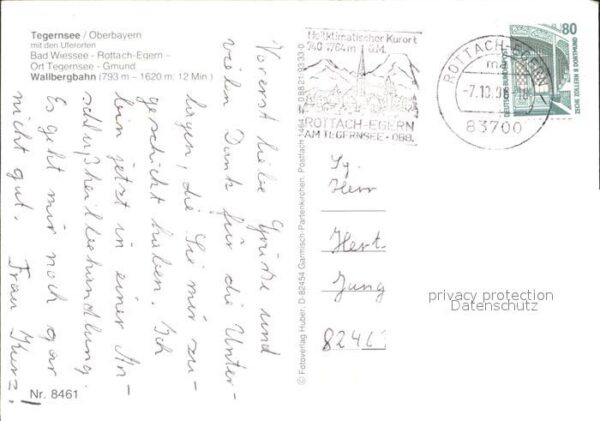 Tegernsee / Oberbayern
mit den Uferorten
Bad Wiessee - Rottach-Egern -
Ort Tegernsee - Gmund
Wallbergbahn (793 m – 1620 m; 12 Min.)
Vorerst liebe Grüße und
vielen Dank für die Unter-
lagen, die Sie mir zu-
geschickt haben. Ich
bin jetzt in einer An-
schlußheilbehandlung.
Es geht mir noch gar
nicht gut. Frau Kurz!
Nr. 8461
© Fotoverlag Huber, D-82454 Garmisch-Partenkirchen, Postfach
Heilklimatischer Kurort
740 1764 m ü.M.
ROTTACH-EGERN
AM TEGERNSEE - OBB.
ROTTACH-EGERN
-7.10.96-18
83700
80
DEUTSCHE BUNDESPOST
ZECHE ZOLLERN II DORTMUND
Sg.
Herr
Hert
Jung
8246
privacy protection
Datenschutz